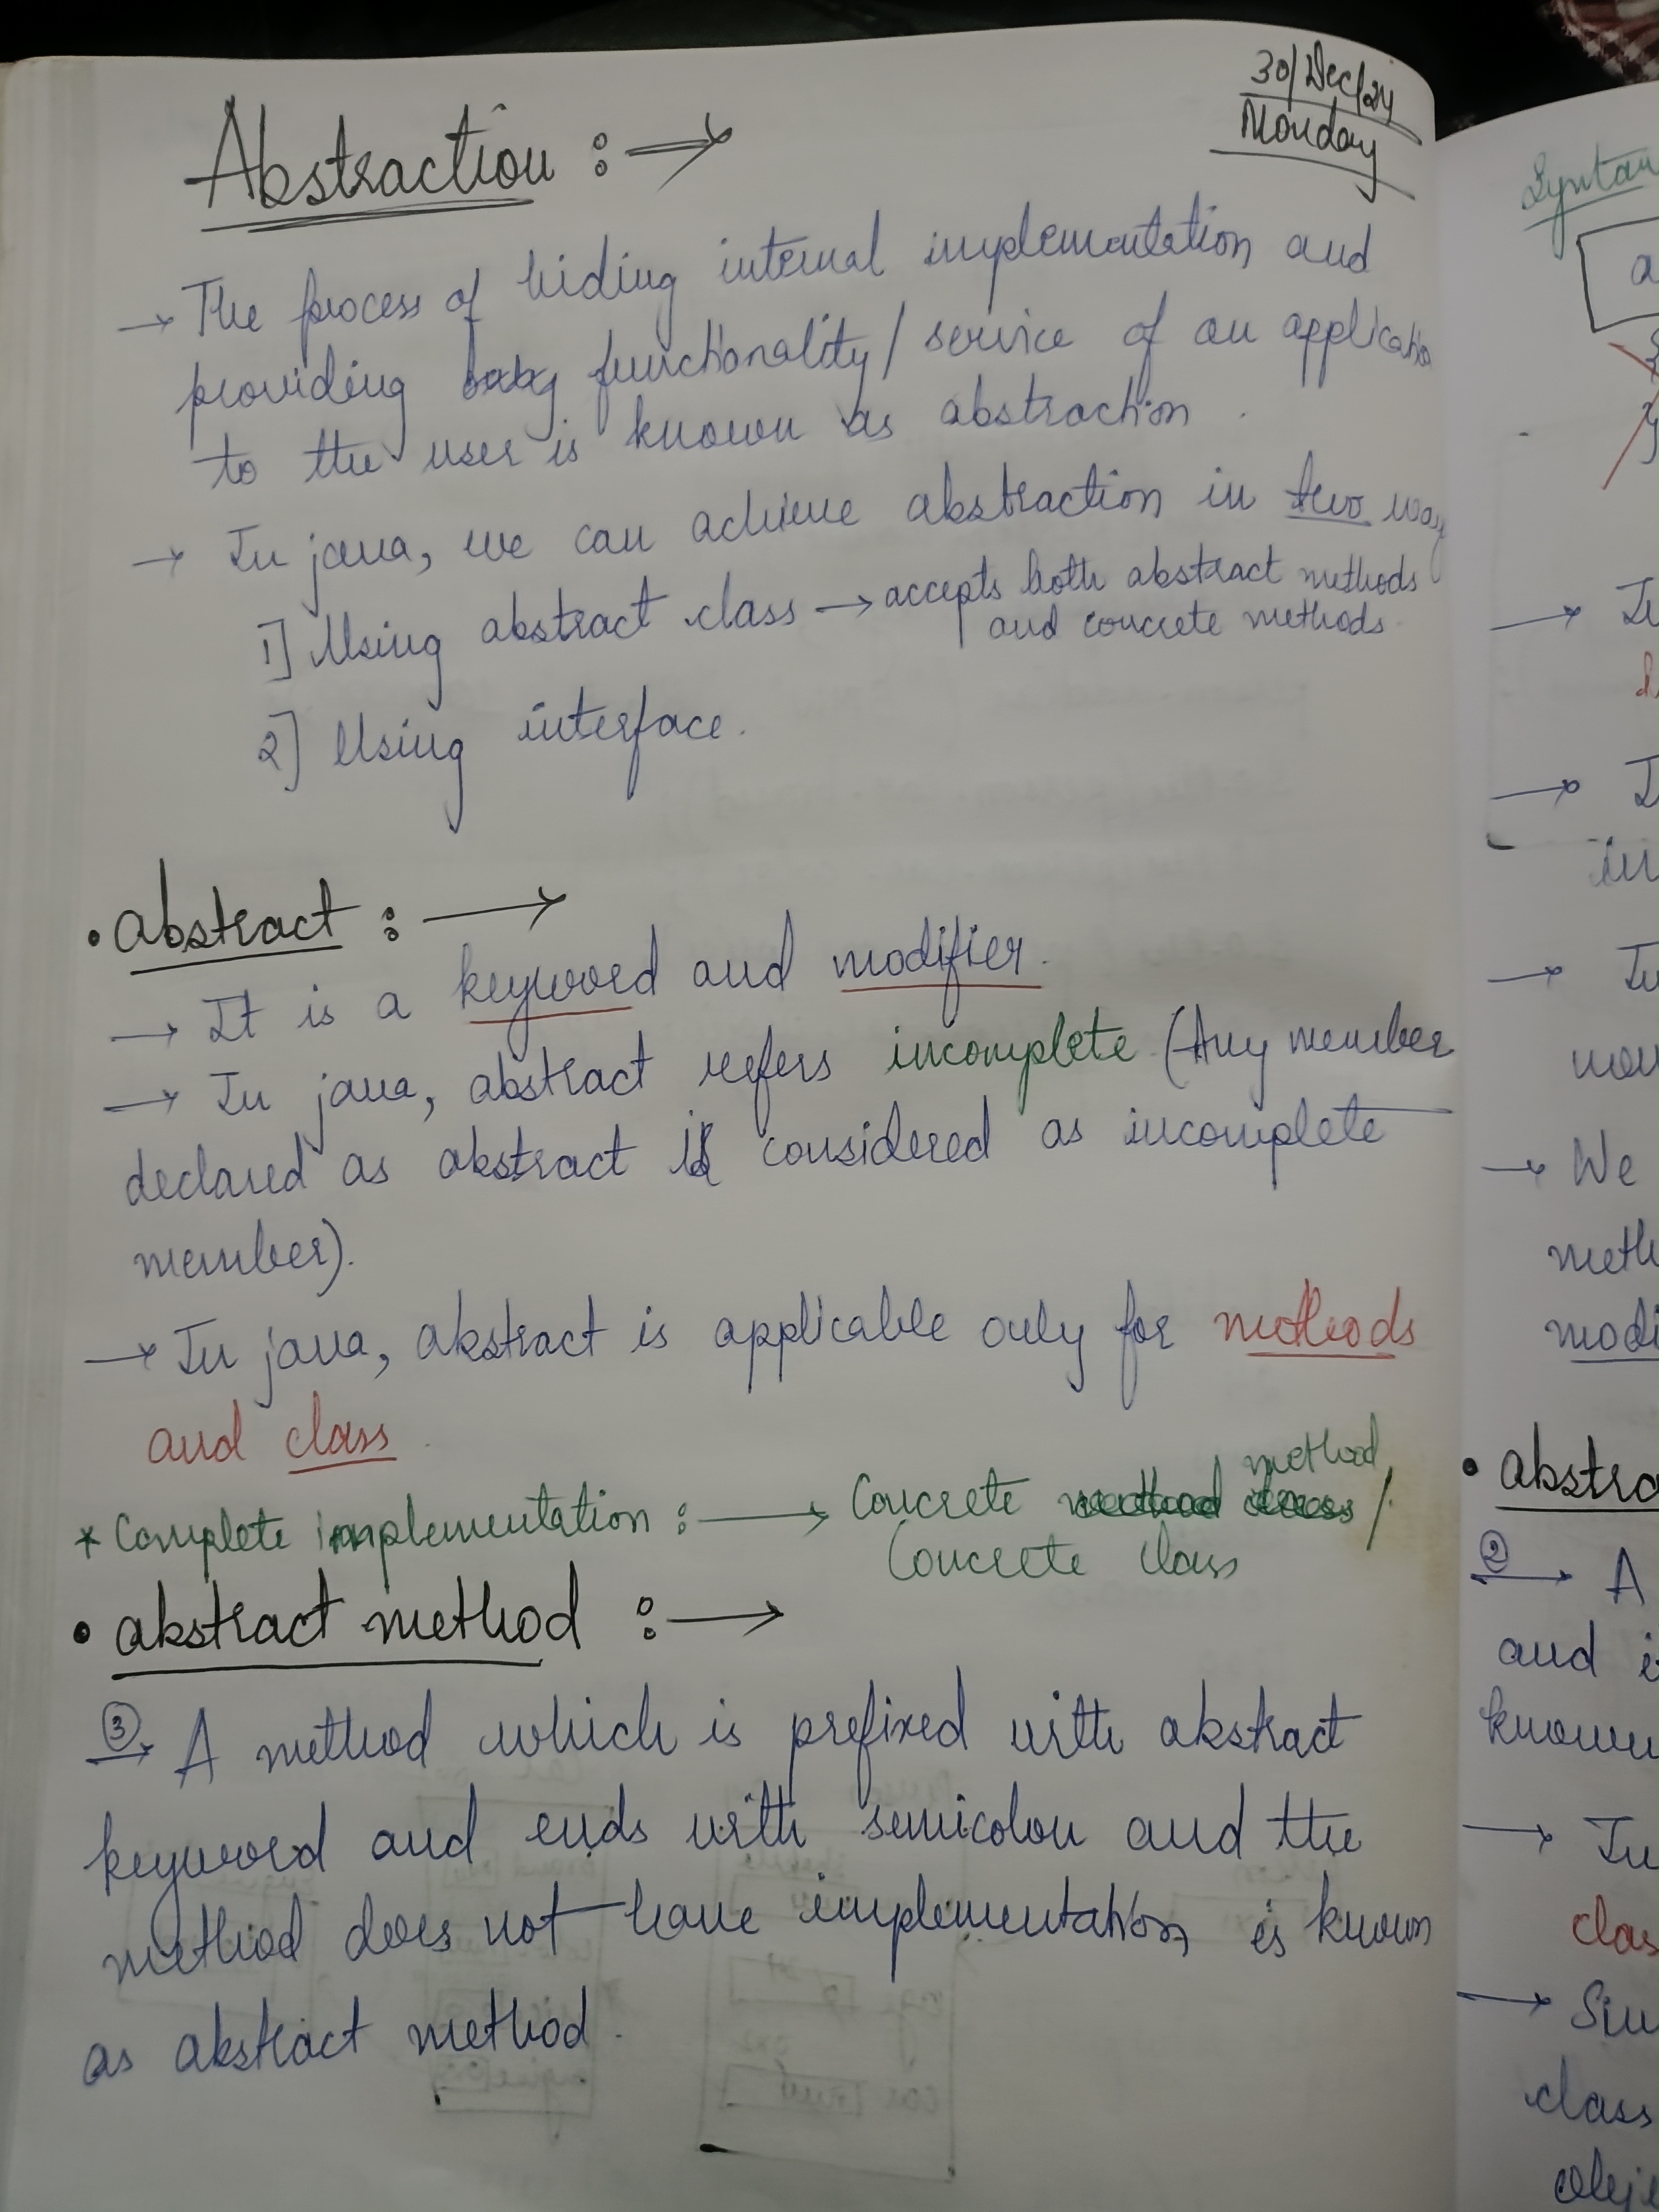 30/Dec/24
Monday
Abstraction :→
→ The process of hiding internal implementation and
providing functionality/service of an applicatio
to the user is known as abstraction.
→ In java, we can achieve abstraction in two way
1] Using abstract class → accepts both abstract methods
and concrete methods.
2] Using interface.
• abstract :→
→ It is a keyword and modifier.
→ In java, abstract refers incomplete (Any member
declared as abstract is considered as incomplete
member).
→ In java, abstract is applicable only for methods
and class.
* Complete implementation :→ Concrete method /
Concrete class
• abstract method :→
③→ A method which is prefixed with abstract
keyword and ends with semicolon and the
method does not have implementation is known
as abstract method.
Syntax
a
→ In
→ I
in
→ In
→ We
meth
modi
• abstra
②→ A
and i
known
→ In
clas
→ Sin
class
obje